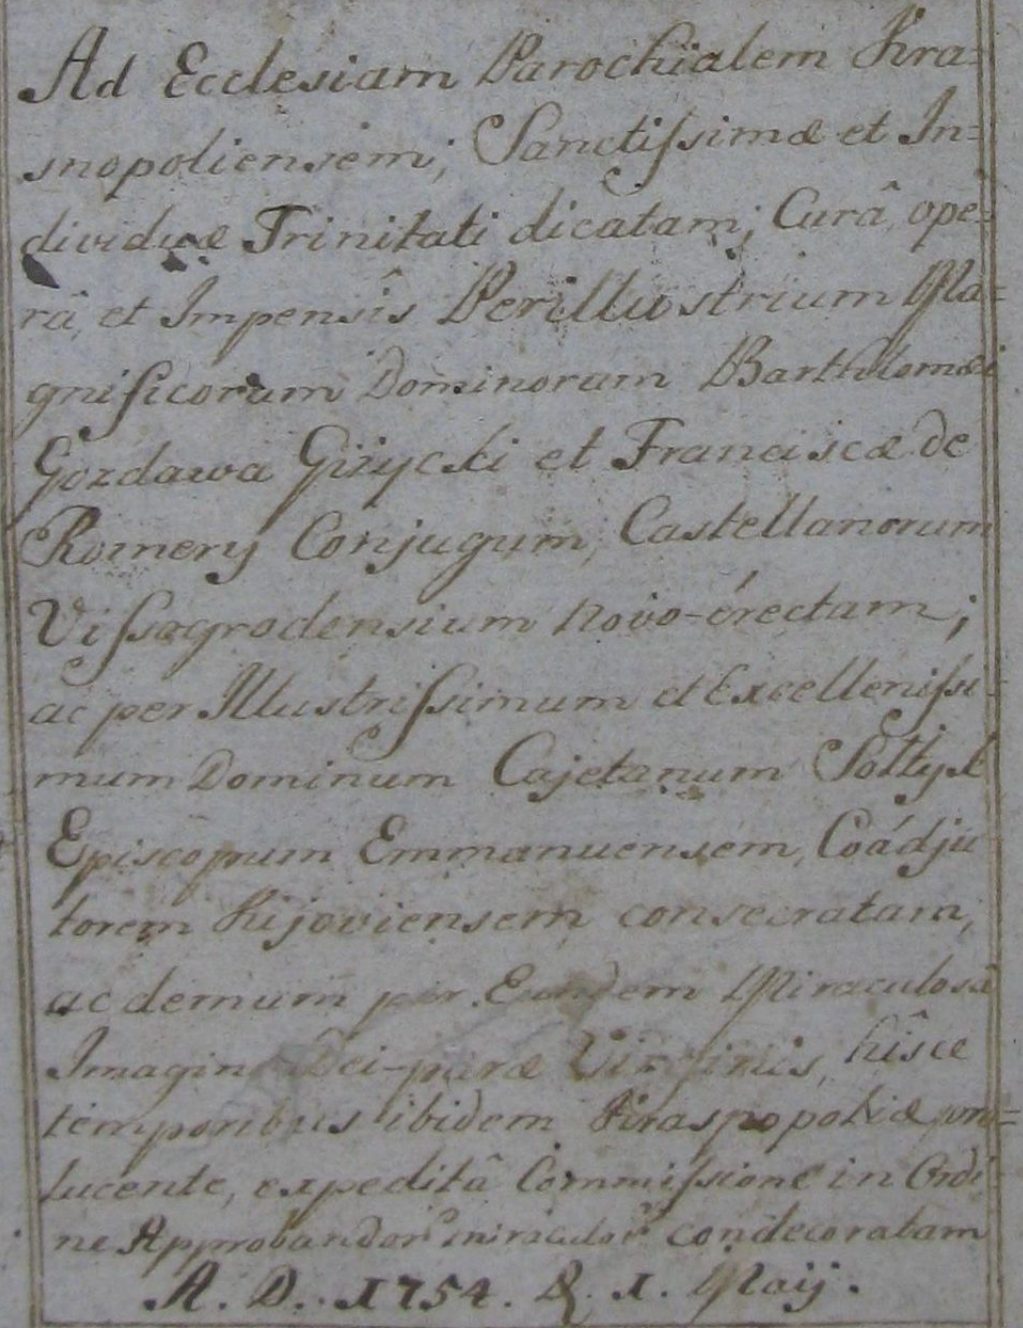 Ad Ecclesiam Parochialem Kra=
snopoliensem; Sanctissimæ et In=
dividuæ Trinitati dicatam; Curâ ope=
râ et Impensîs Perillustrium Ma=
gnificorum Dominorum Bartholomæi
Gozdawa Giżycki et Franciscæ de
Romery Conjugum, Castellanorum
Vissogrodensium novo-érectam;
ac per Illustrissimum et Excellentissi=
mum Dominum Cajetanum Sołtyk
Episcopum Emmanuensem, Coádju
torem Kijoviensem consecratam,
ac demum per Eundem Miraculosâ
Imagine Dei-paræ Virginis, hîsce
temporibus ibidem pro=
lucente, expeditâ Commissione in Ordi
ne Approbandor miraculor condecoratam
A. D. 1754. D. 1. Maij.